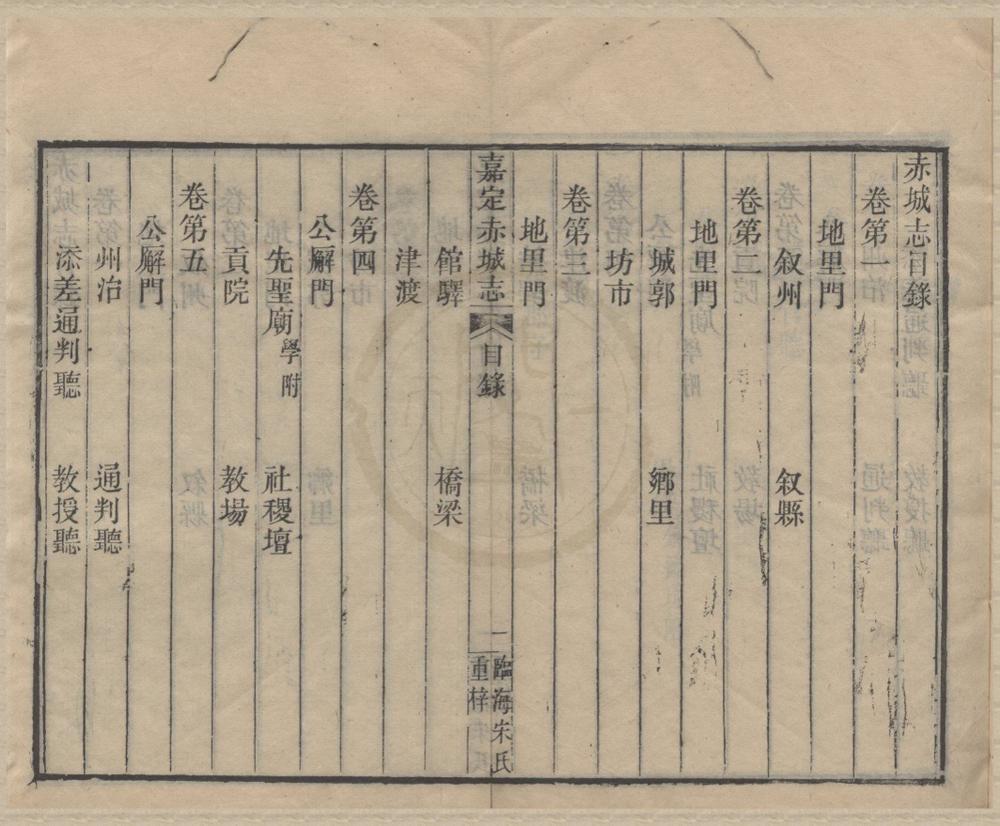 赤城志目錄
卷第一
地里門
叙州
叙縣
卷第二
地里門
城郭
鄉里
坊市
卷第三
地里門
嘉定赤城志
目錄
一
臨海宋氏
重梓
館驛
橋梁
津渡
卷第四
公廨門
先聖廟學附
社稷壇
貢院
教場
卷第五
公廨門
州治
通判聽
添差通判聽
教授聽